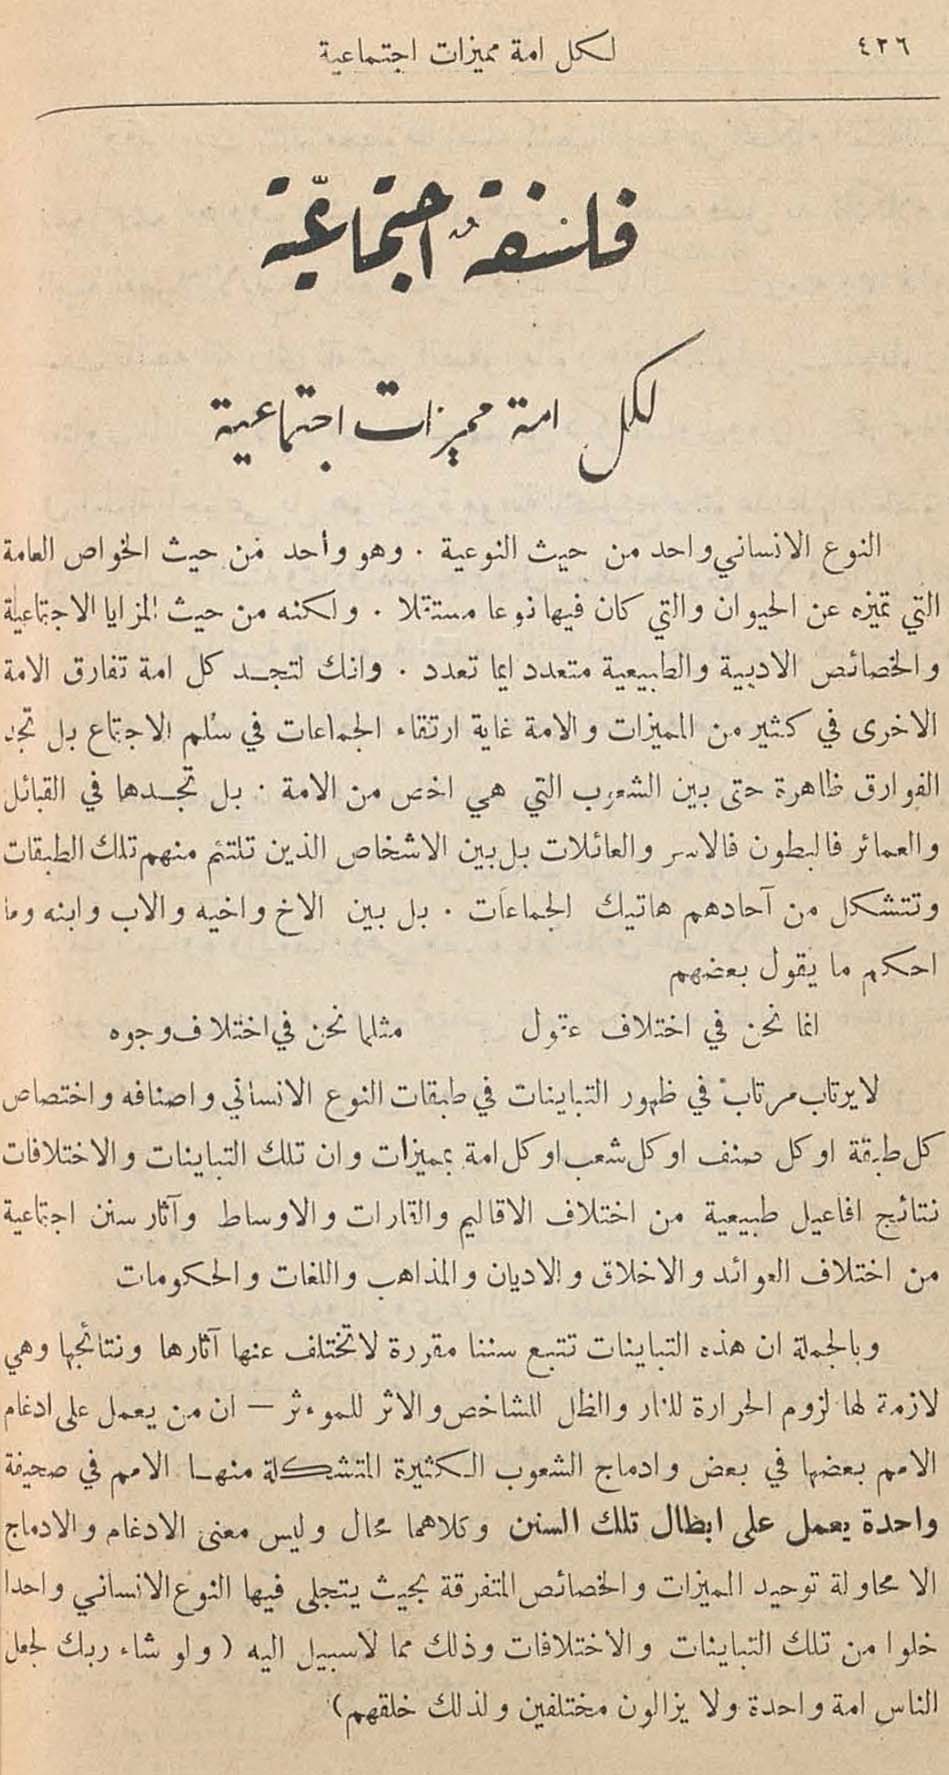 ٤٢٦
لكل امة مميزات اجتماعية
فلسفة اجتماعيّة
لكل امة مميزات اجتماعية
النوع الانساني واحد من حيث النوعية . وهو واحد من حيث الخواص العامة
التي تميزه عن الحيوان والتي كان فيها نوعا مستقلا . ولكنه من حيث المزايا الاجتماعية
والخصائص الادبية والطبيعية متعدد ايما تعدد . وانك لتجد كل امة تفارق الامة
الاخرى في كثير من المميزات والامة غاية ارتقاء الجماعات في سلم الاجتماع بل تجد
الفوارق ظاهرة حتى بين الشعوب التي هي اخص من الامة . بل تجدها في القبائل
والعمائر فالبطون فالاسر والعائلات بل بين الاشخاص الذين تلتئم منهم تلك الطبقات
وتتشكل من آحادهم هاتيك الجماعات . بل بين الاخ واخيه والاب وابنه وما
احكم ما يقول بعضهم
انما نحن في اختلاف عقول مثلما نحن في اختلاف وجوه
لا يرتاب مرتاب في ظهور التباينات في طبقات النوع الانساني واصنافه واختصاص
كل طبقة او كل صنف او كل شعب او كل امة بمميزات وان تلك التباينات والاختلافات
نتائج افاعيل طبيعية من اختلاف الاقاليم والقارات والاوساط وآثار سنن اجتماعية
من اختلاف العوائد والاخلاق والاديان والمذاهب واللغات والحكومات
وبالجملة ان هذه التباينات تتبع سننا مقررة لا تختلف عنها آثارها ونتائجها وهي
لازمة لها لزوم الحرارة للنار والظل للشاخص والاثر للموءثر — ان من يعمل على ادغام
الامم بعضها في بعض وادماج الشعوب الكثيرة المتشكلة منها الامم في صحيفة
واحدة يعمل على ابطال تلك السنن وكلاهما محال وليس معنى الادغام والادماج
الا محاولة توحيد المميزات والخصائص المتفرقة بحيث يتجلى فيها النوع الانساني واحدا
خلوا من تلك التباينات والاختلافات وذلك مما لا سبيل اليه ( ولو شاء ربك لجعل
الناس امة واحدة ولا يزالون مختلفين ولذلك خلقهم )